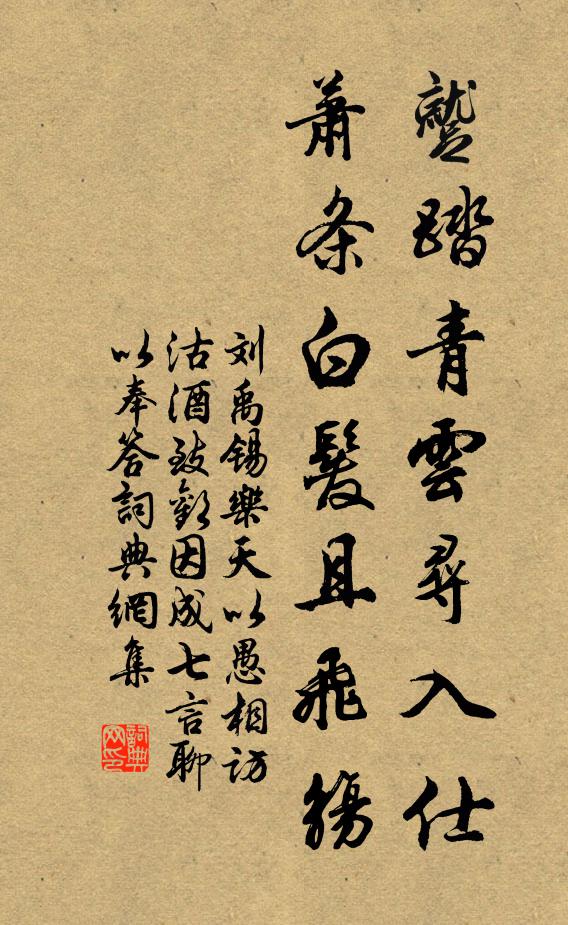 蹵踏青雲尋入仕
蕭条白髮且飛觴
刘禹锡樂天以愚相访
沽酒致歡因成七言聊
以奉答詞典網集
詞典
网印